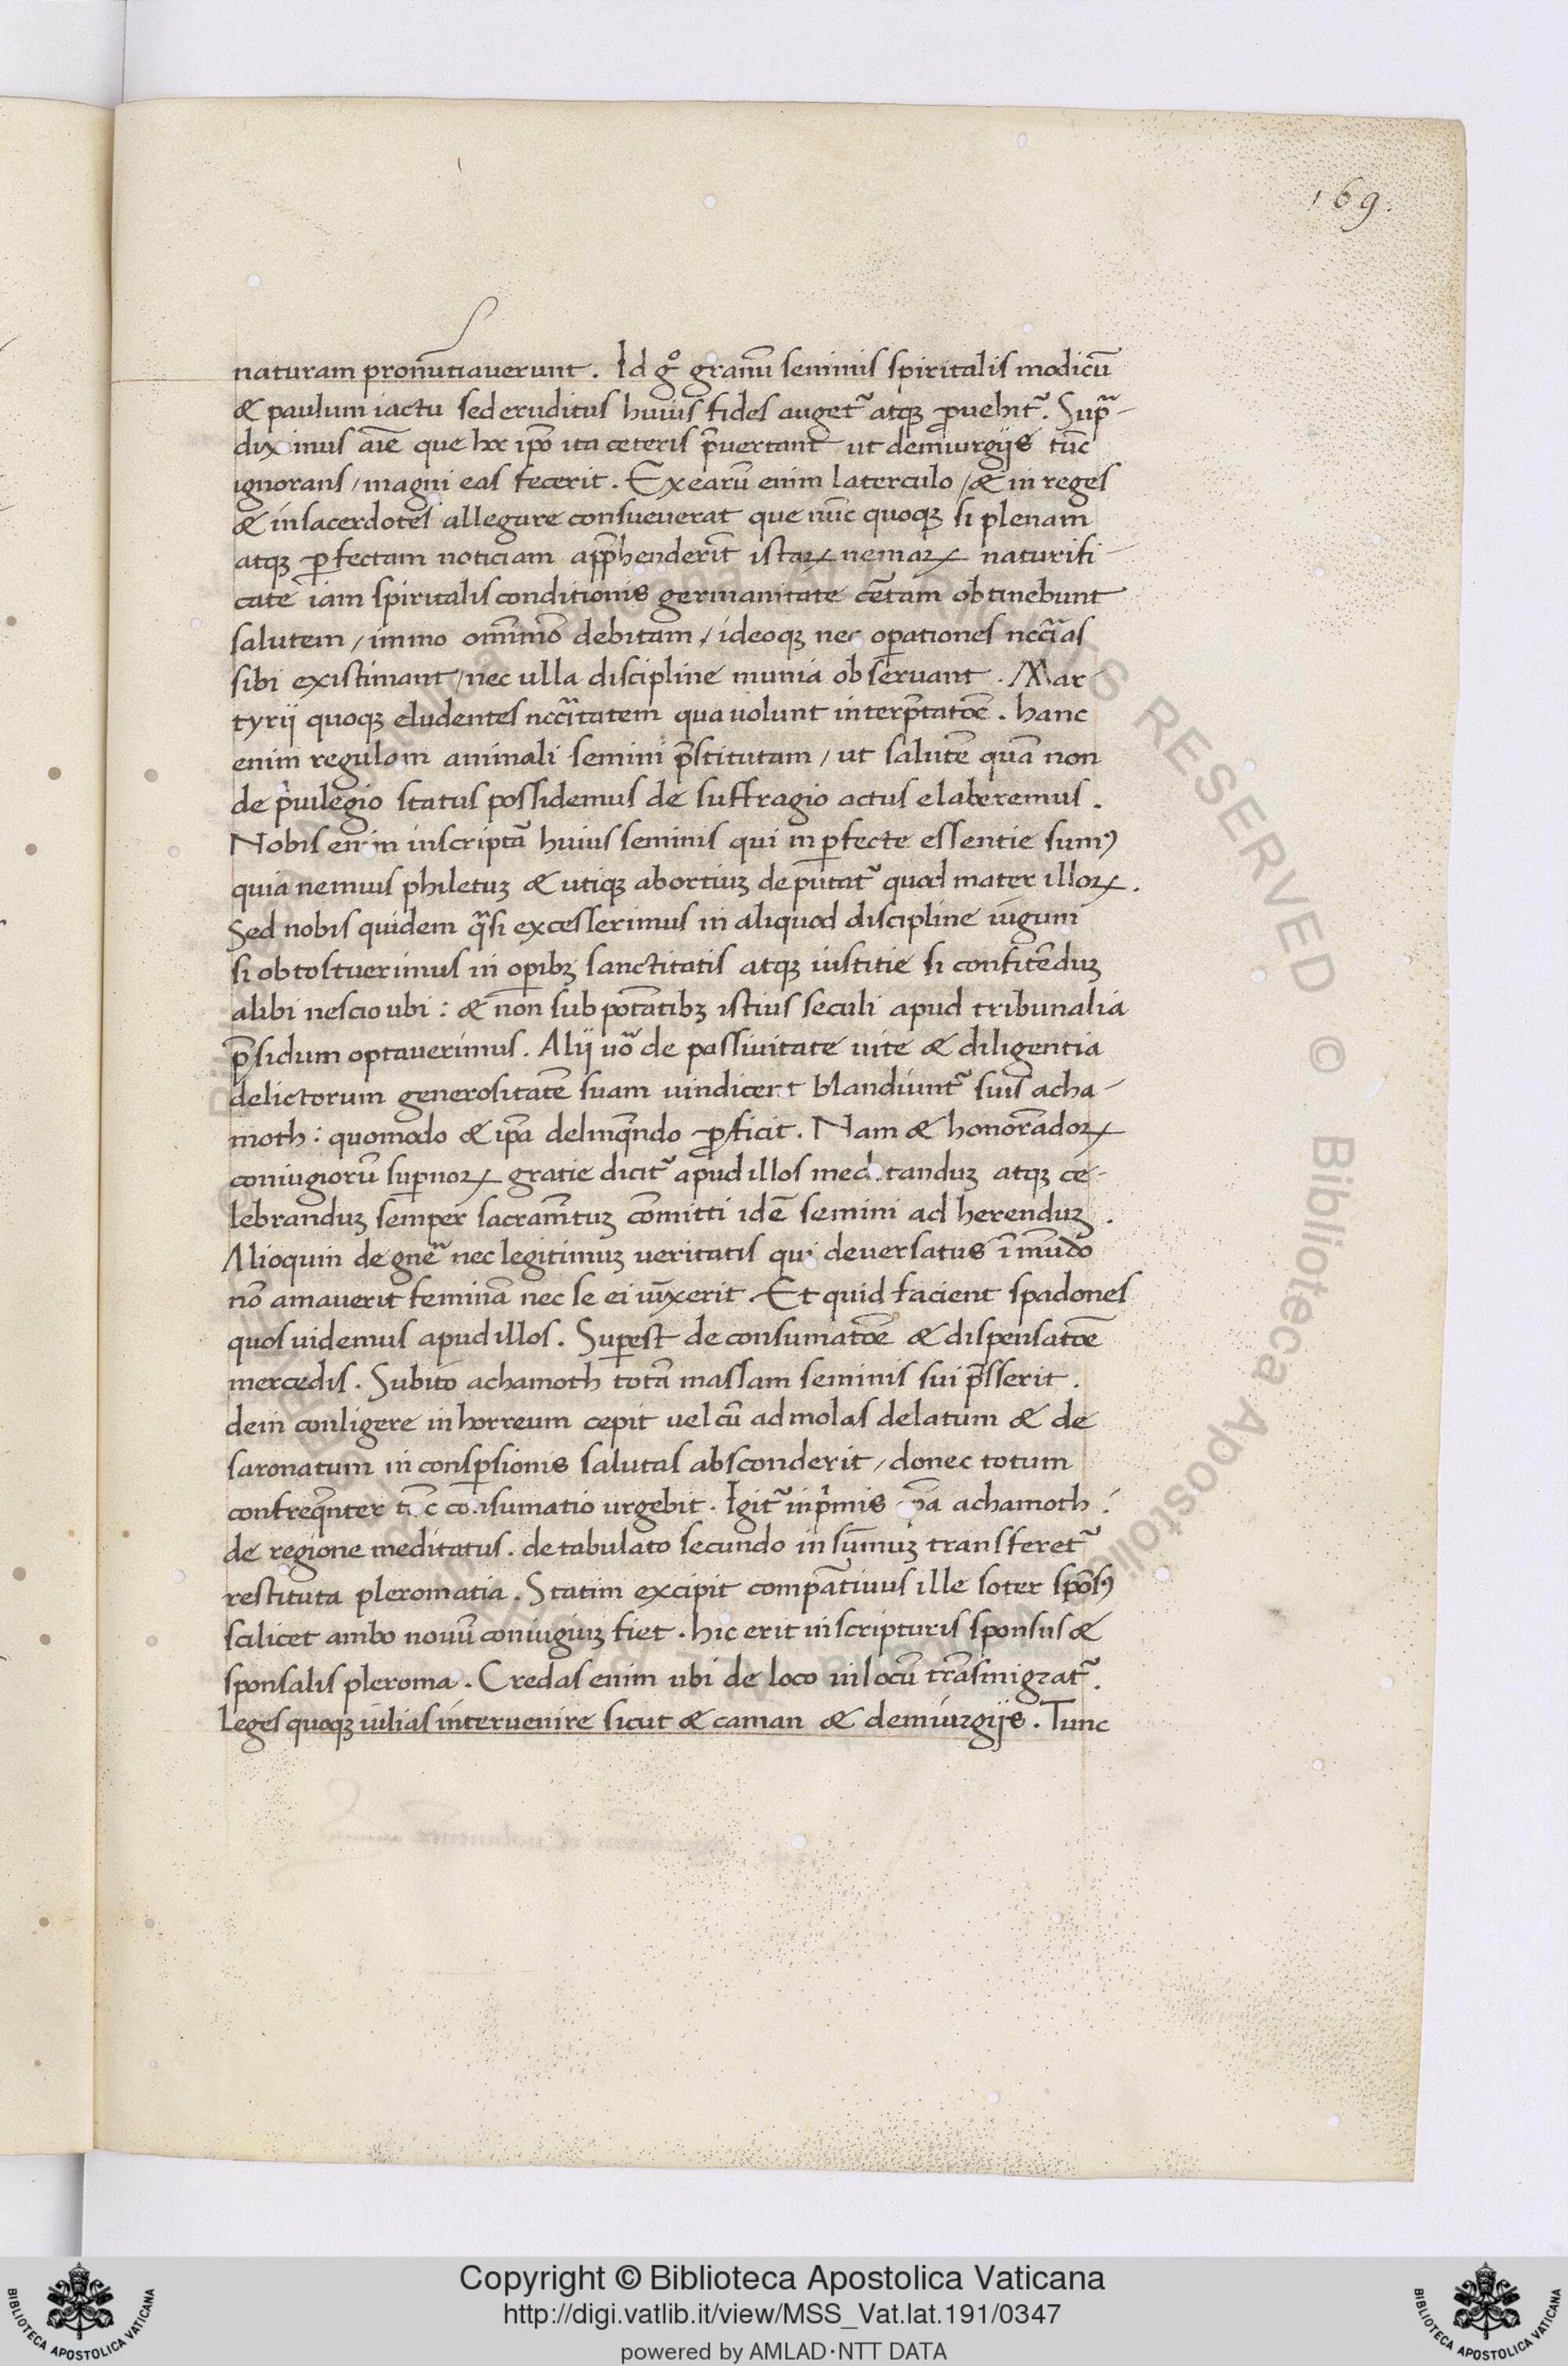 169.
naturam pronūtiaverunt. Id gͦ granū seminis spiritalis modicū
& paulum iactu sed eruditus huius fides auget᷑ atqꝫ ꝓvehit᷑. Supᷓ-
diximus aīe que hoc ipō ita ceteris p̄vertant ut demiurgijs tūc
ignorans / magni eas fecerit. Ex earū enim laterculo / & in reges
& in sacerdotes allegare consueverat que nūc quoqꝫ si plenam
atqꝫ ꝑfectam noticiam app̄henderīt istaꝝ nemaꝝ naturifi-
cate iam spiritalis conditionis germanitate c̄etam obtinebunt
salutem / immo omīmō debitam / ideoqꝫ nec oꝑationes nccīas
sibi existimant / nec ulla discipline munia observant. Mar
tyrij quoqꝫ eludentes nccītatem qua volunt interp̄tatōe. hanc
enim regulam animali semini p̄stitutam / ut salutē quā non
de pͥvilegio status possidemus de suffragio actus elaberemus.
Nobis enim inscriptā huius seminis qui inꝑfecte essentie sumꝰ
quia nemuis philetuꝫ & utiqꝫ abortiuꝫ deputat᷑ quod mater illoꝝ.
Sed nobis quidem qᷓsi excesserimus in aliquod discipline iugum
si obtostuerimus in oꝑibꝫ sanctitatis atqꝫ iustitie si confitēduꝫ
alibi nescio ubi: & non sub potātibꝫ istius seculi apud tribunalia
p̄sidum optaverimus. Alij vō de passivitate vite & diligentia
delictorum generositatē suam vindicent blandiunt᷑ suis acha-
moth: quomodo & ip̄a delinq̄ndo ꝓficit. Nam & honorādoꝝ
coniugiorū suꝑnoꝝ gratie dicit᷑ apud illos med tanduꝫ atqꝫ ce-
lebranduꝫ semper sacramītuꝫ cōmitti idē semini ad herenduꝫ.
Alioquin degner̄ nec legitimuꝫ veritatis qui deversatus ī mūdo
nō amaverit feminā nec se ei iūxerit. Et quid facient spadones
quos videmus apud illos. Suꝑest de consumatōe & dispensatōe
mercedis. Subito achamoth totā massam seminis sui p̄sserit.
dein conligere in horreum cepit vel cū ad molas delatum & de
saronatum in consꝑsionis salutas absconderit / donec totum
confreq̄nter tūc consumatio urgebit. Igit᷑ inpͥmis p̄a achamoth:
de regione meditatus. de tabulato secundo in sūmuꝫ transferet᷑
restituta pleromatia. Statim excipit compātivus ille soter spōsꝰ
scilicet ambo novū coniugiuꝫ fiet. hic erit in scripturis sponsus &
sponsalis pleroma. Credas enim ubi de loco in locū trāsmigrat᷑.
Leges quoqꝫ iulias intervenire sicut & caman & demiurgijs. Tunc
Copyright © Biblioteca Apostolica Vaticana
http://digi.vatlib.it/view/MSS_Vat.lat.191/0347
powered by AMLAD·NTT DATA